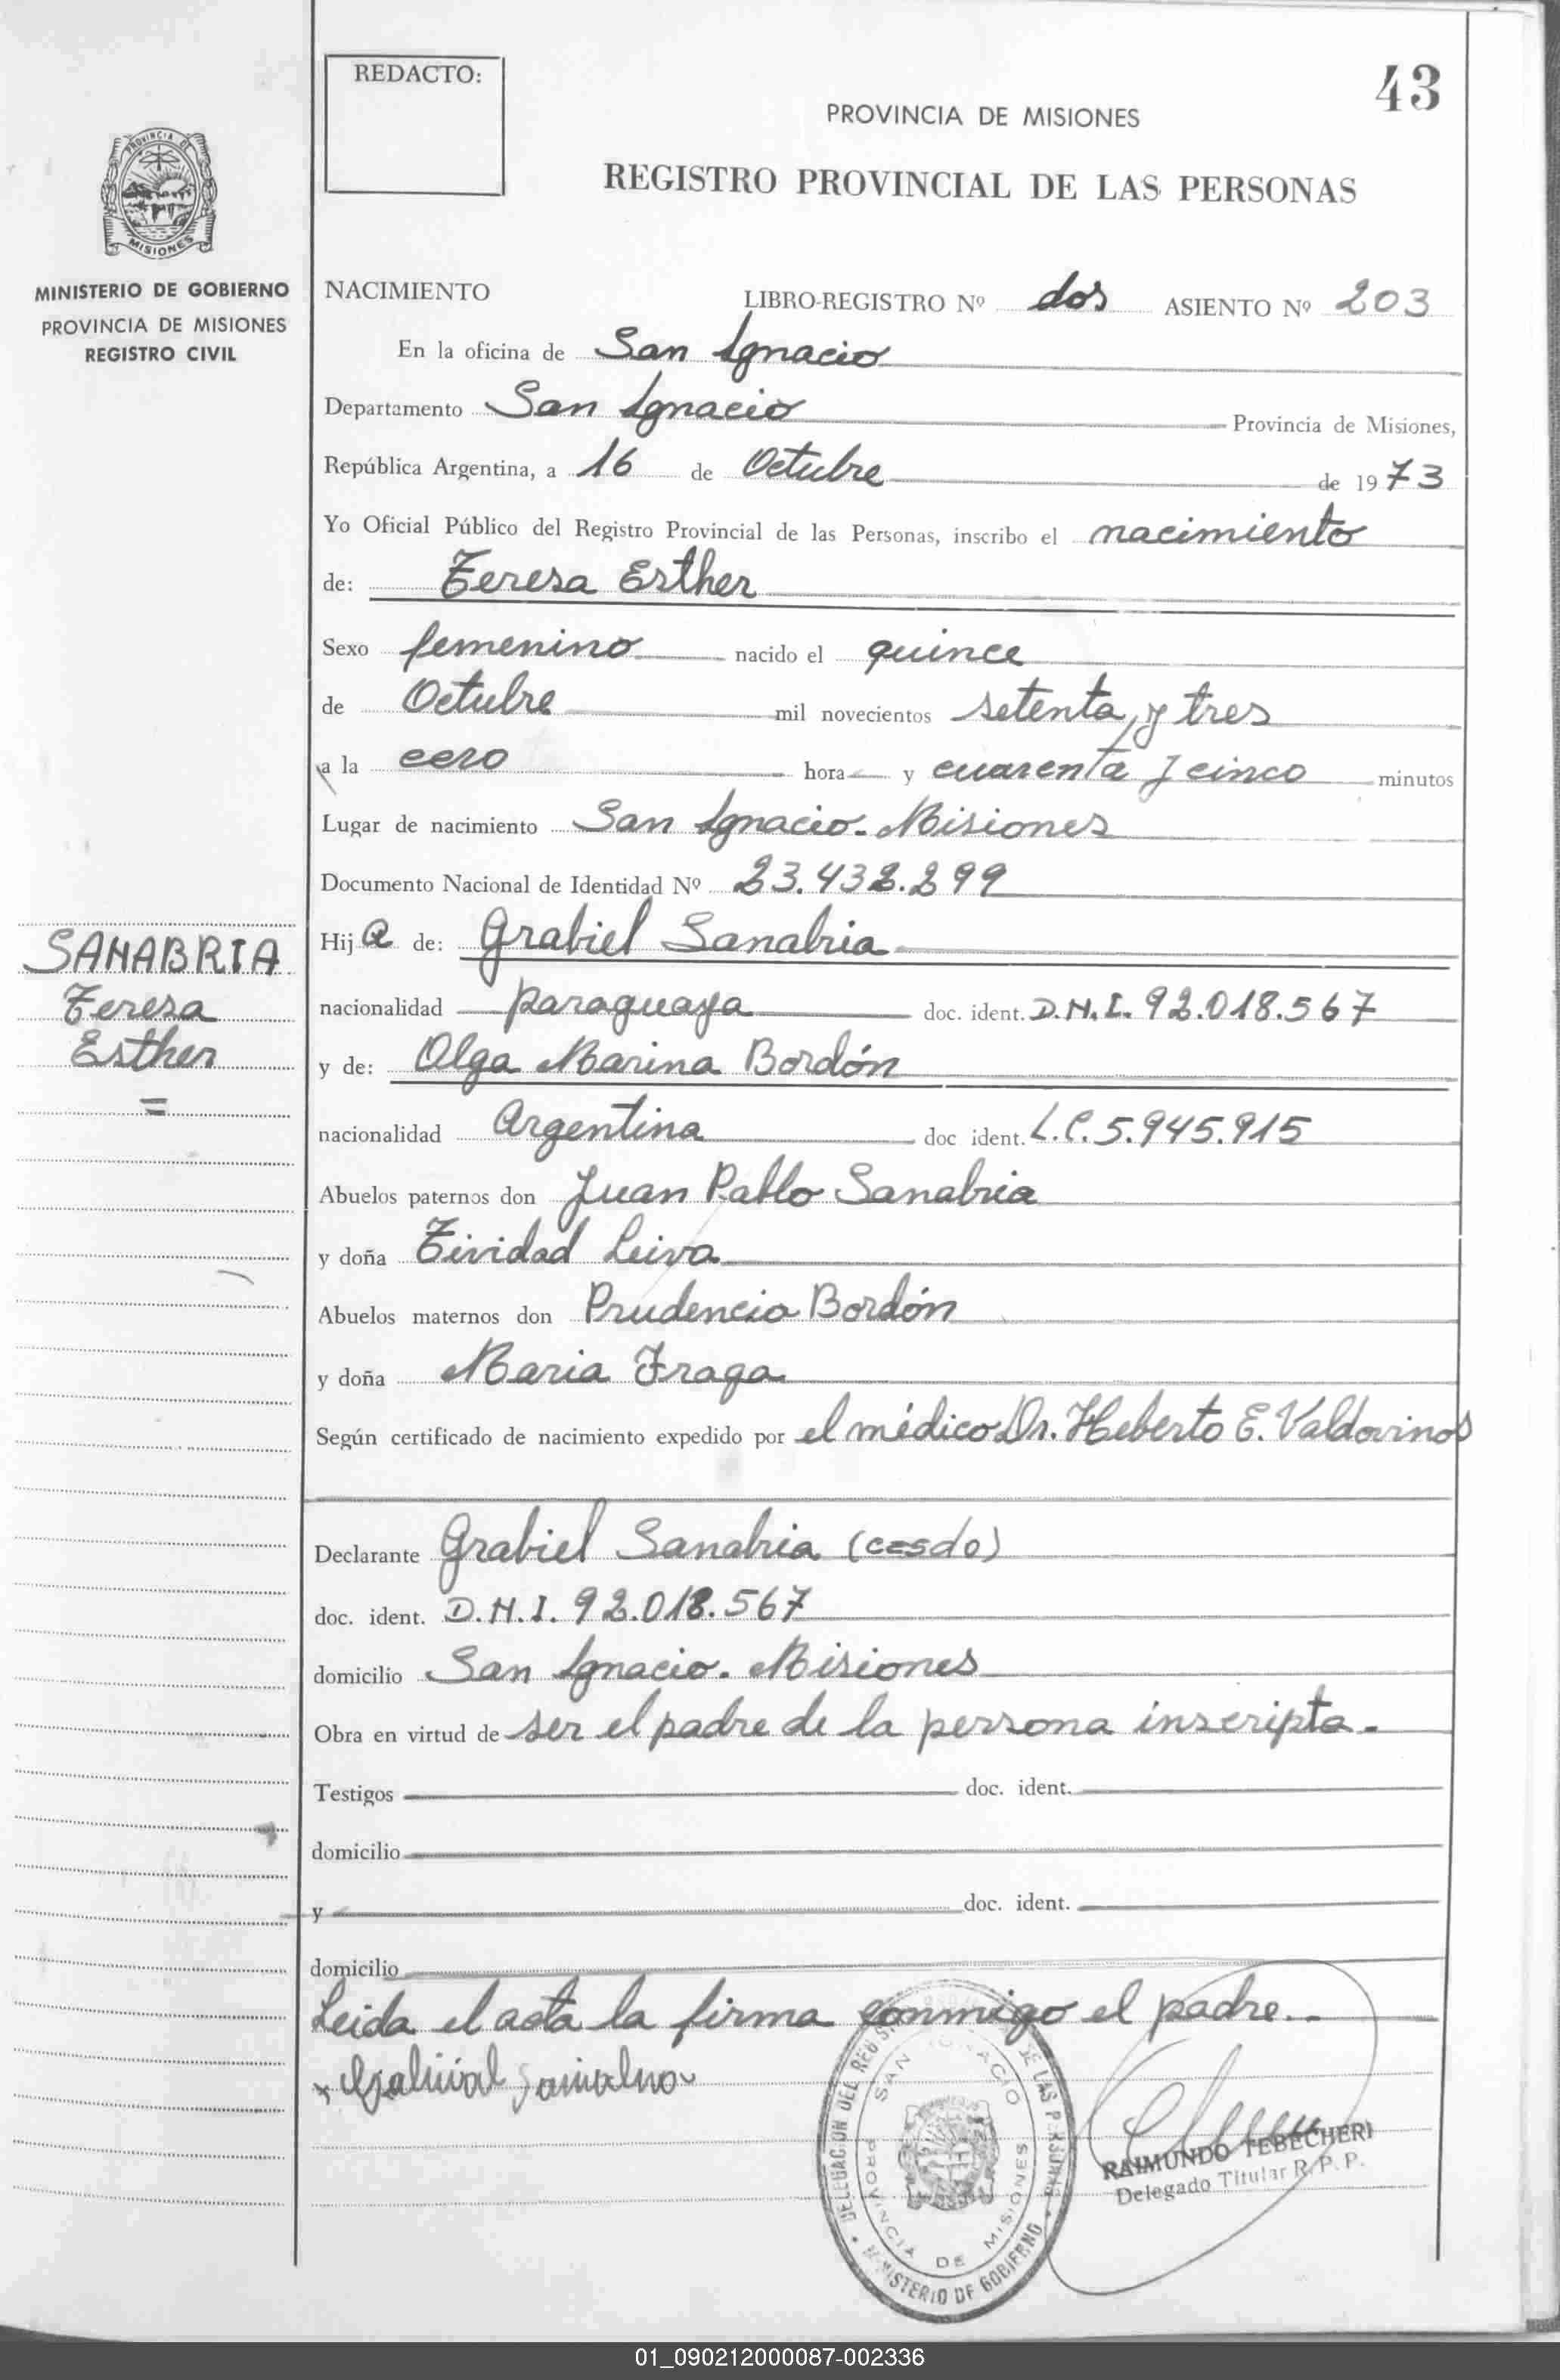 REDACTO:
43
PROVINCIA DE MISIONES
REGISTRO PROVINCIAL DE LAS PERSONAS
PROVINCIA DE
MISIONES
MINISTERIO DE GOBIERNO
PROVINCIA DE MISIONES
REGISTRO CIVIL
NACIMIENTO
LIBRO-REGISTRO Nº dos ASIENTO Nº 203
En la oficina de San Ignacio
Departamento San Ignacio Provincia de Misiones,
República Argentina, a 16 de Octubre de 1973
Yo Oficial Público del Registro Provincial de las Personas, inscribo el nacimiento
de: Teresa Esther
Sexo femenino nacido el quince
de Octubre mil novecientos setenta y tres
a la cero hora y cuarenta y cinco minutos
Lugar de nacimiento San Ignacio. Misiones
Documento Nacional de Identidad Nº 23.432.299
SANABRIA
Teresa
Esther
=
Hija de: Grabiel Sanabria
nacionalidad paraguaya doc. ident. D.N.I. 92.018.567
y de: Olga Marina Bordón
nacionalidad Argentina doc ident. L.C. 5.945.915
Abuelos paternos don Juan Pablo Sanabria
y doña Tividad Leiva
Abuelos maternos don Prudencio Bordón
y doña Maria Fraga
Según certificado de nacimiento expedido por el médico Dr. Heberto E. Valdovinos
Declarante Grabiel Sanabria (casdo)
doc. ident. D.N.I. 92.018.567
domicilio San Ignacio. Misiones
Obra en virtud de ser el padre de la persona inscripta.
Testigos doc. ident.
domicilio
y doc. ident.
domicilio
Leida el acta la firma conmigo el padre.
DELEGACION DEL REGISTRO DE LAS PERSONAS
SAN IGNACIO
PROVINCIA DE MISIONES
MINISTERIO DE GOBIERNO
RAIMUNDO TEBECHERI
Delegado Titular R. P. P.
01_090212000087-002336